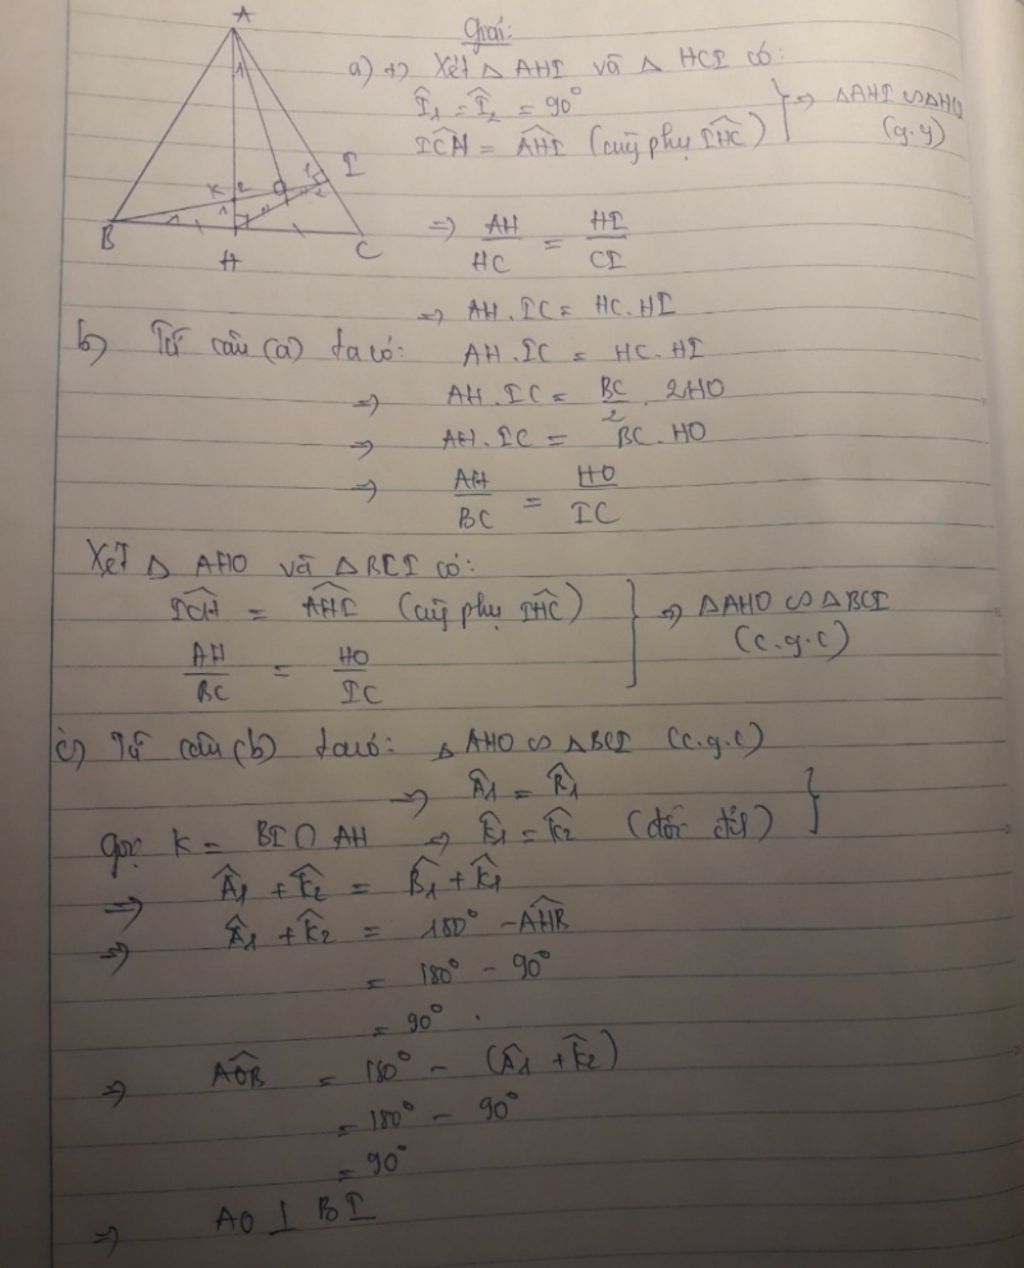 Giải:
A
1
I
1
2
K
2
O
1
1
B
H
C
a) +) Xét △ AHI và △ HCI có:
Î₁ = Î₂ = 90°
ICH = AHI (cùng phụ IHC)
} => △AHI ∽ △HCI
(g.g)
=> AH/HC = HI/CI
=> AH . IC = HC . HI
b) Từ câu (a) ta có: AH . IC = HC . HI
=> AH . IC = BC/2 . 2HO
=> AH . IC = BC . HO
=> AH/BC = HO/IC
Xét △ AHO và △BCI có:
ICH = AHI (cùng phụ IHC)
AH/BC = HO/IC
} => △AHO ∽ △BCI
(c.g.c)
c) Từ câu (b) ta có: △ AHO ∽ △BCI (c.g.c)
=> Â₁ = B̂₁
Gọi K = BI ∩ AH => K̂₁ = K̂₂ (đối đỉnh) }
=> Â₁ + K̂₂ = B̂₁ + K̂₁
=> Â₁ + K̂₂ = 180° - AHB
= 180° - 90°
= 90°.
=> AOB = 180° - (Â₁ + K̂₂)
= 180° - 90°
= 90°
=> AO ⊥ BI